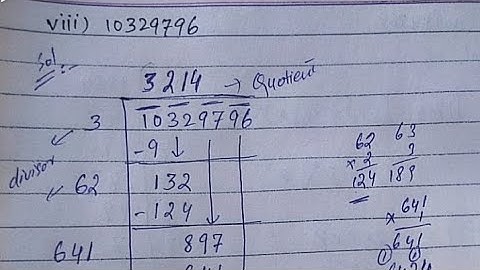 viii) 10329796
Sol:-
3214 → Quotient
3 10329796
-9
divisor
62 132
-124
641 897
62
×2
124
63
3
189
641
× 1
641